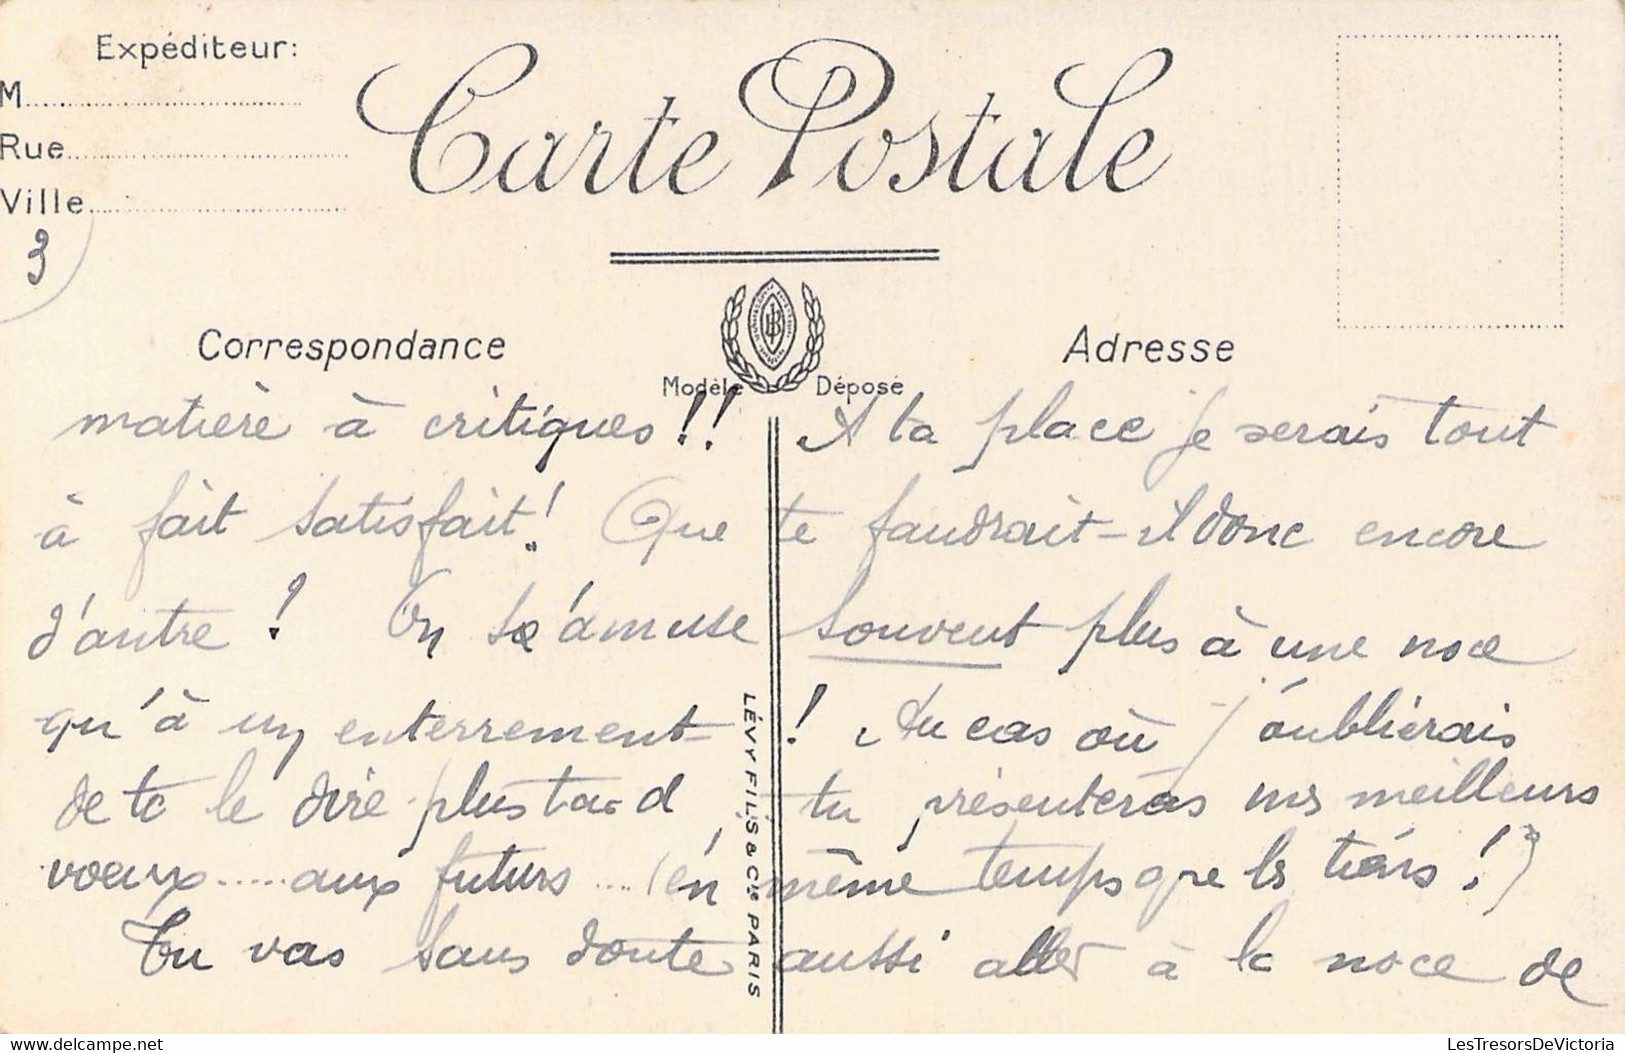 Expéditeur:
M
Rue
Ville
3
Carte Postale
Correspondance
Adresse
Modèle Déposé
matière à critiques!! A ta place je serais tout
à fait satisfait! Que te faudrait-il donc encore
d'autre! On s'amuse souvent plus à une noce
qu'à un enterrement! Au cas où j'oublierais
de te le dire plus tard, tu présenteras mes meilleurs
voeux..... aux futurs .... (en même temps que les tiens!)
Tu vas sans doute aussi aller à la noce de
LÉVY FILS & Cie PARIS
delcampe.net
LesTresorsDeVictoria